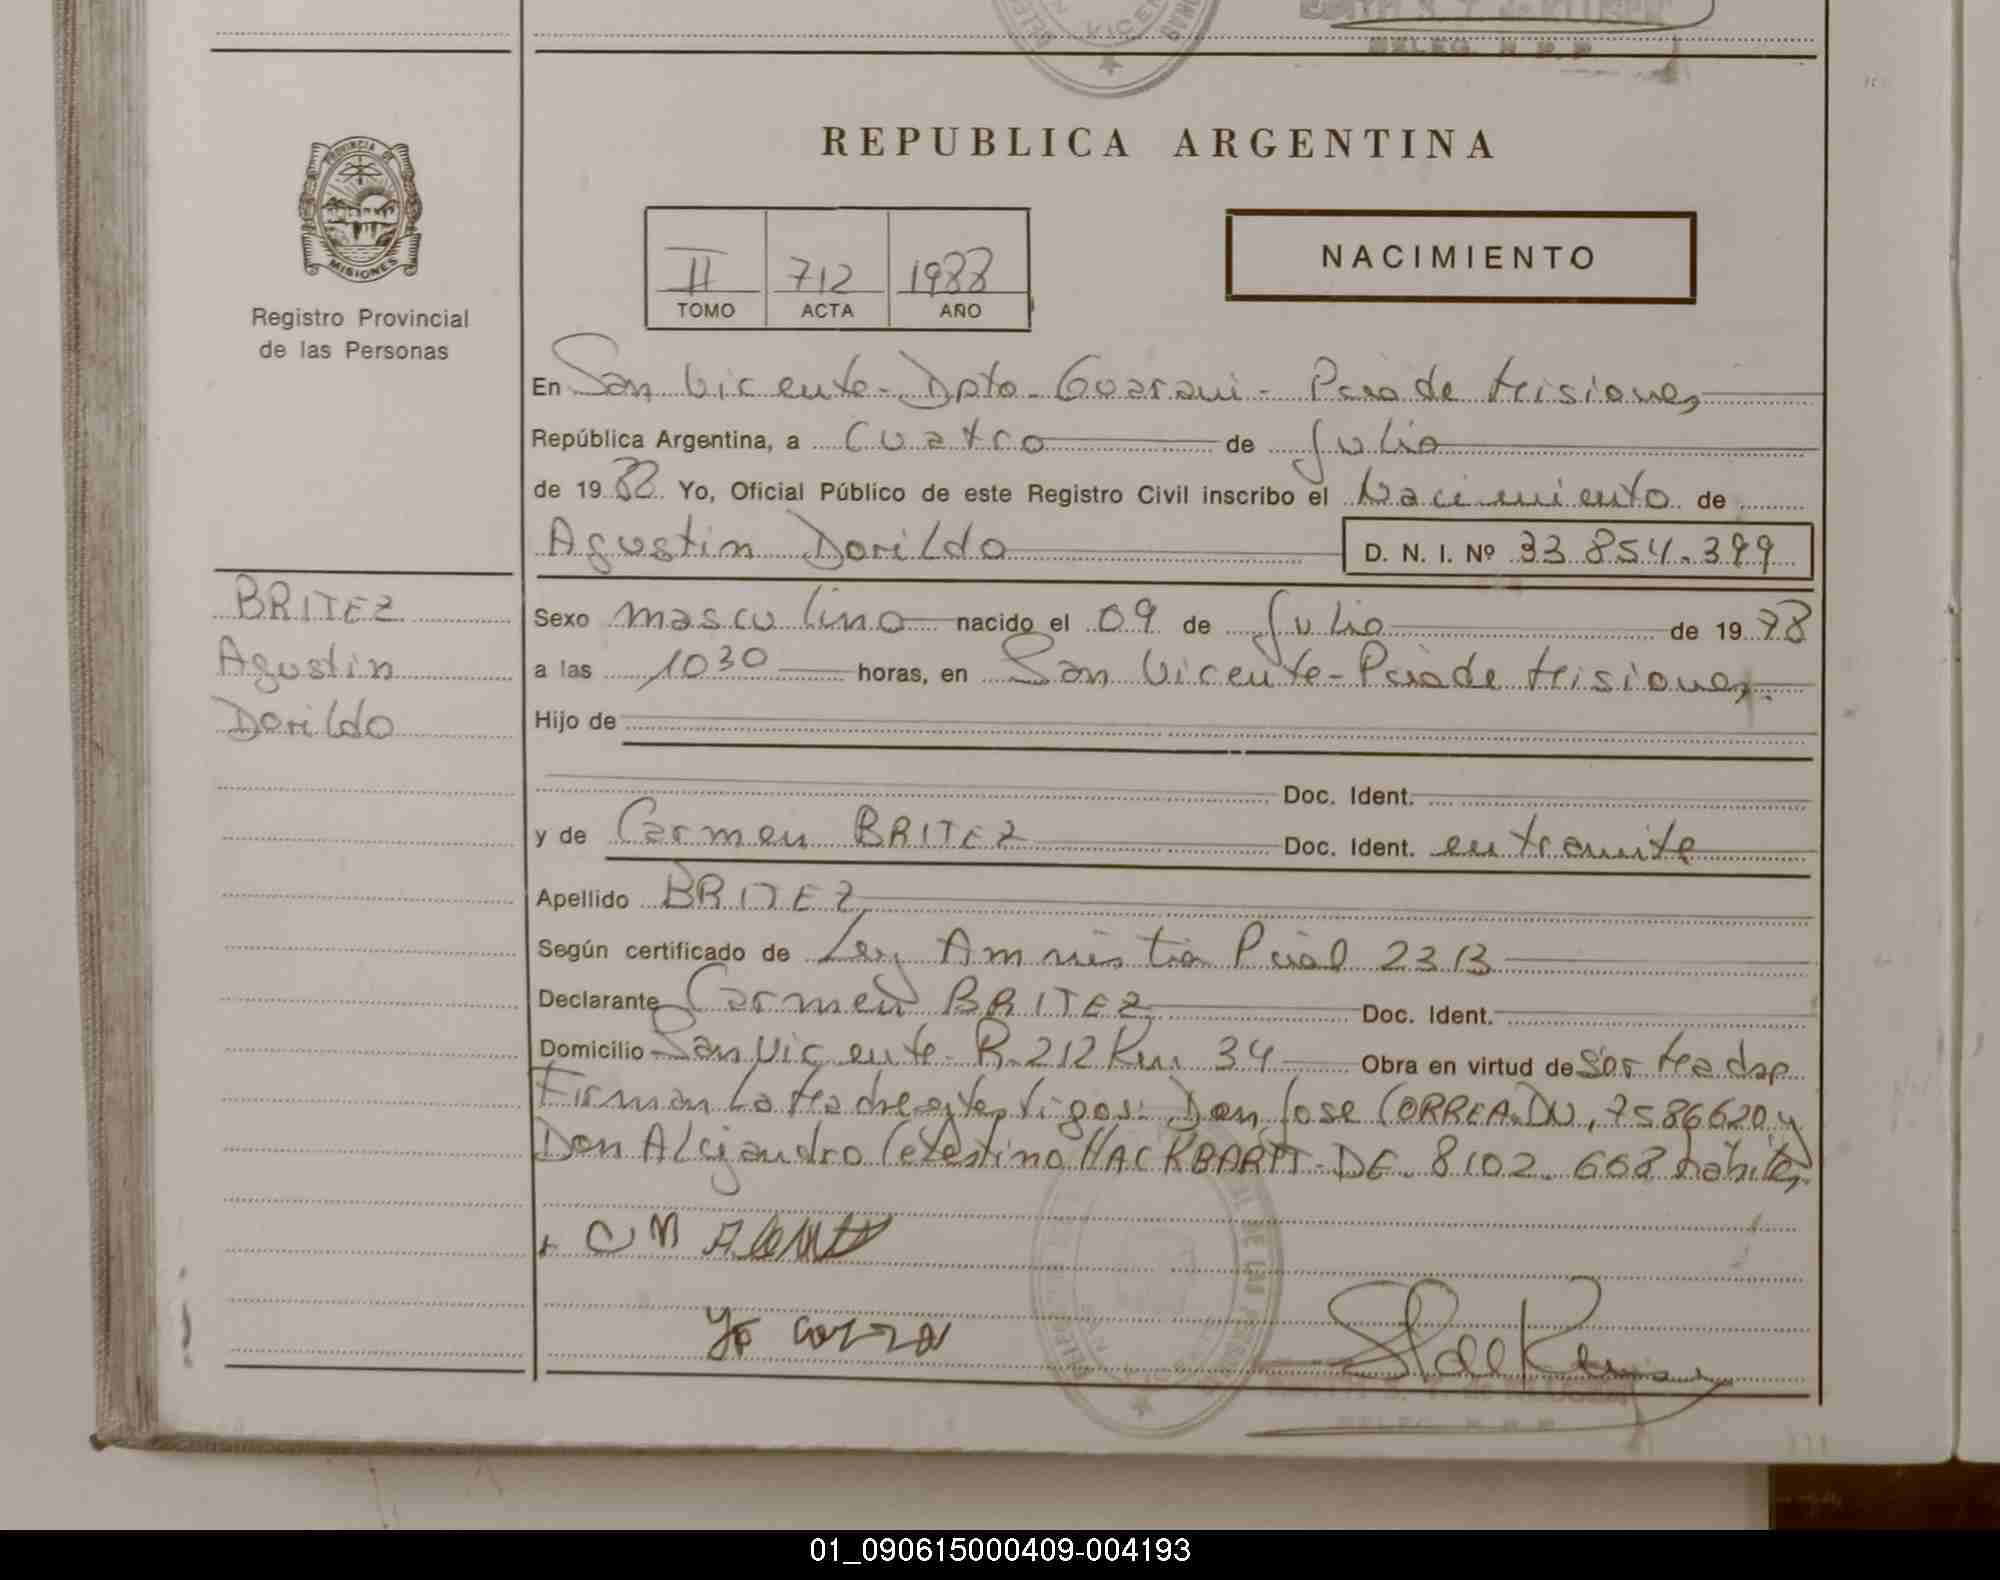 REPUBLICA ARGENTINA
PROVINCIA DE
MISIONES
Registro Provincial
de las Personas
II 712 1988
TOMO ACTA AÑO
NACIMIENTO
En San Vicente - Dpto - Guarani - Pcia de Misiones
República Argentina, a Cuatro de Julio
de 1988 Yo, Oficial Público de este Registro Civil inscribo el Nacimiento de
Agustin Dorildo D. N. I. Nº 33.854.399
BRITEZ
Agustin
Dorildo
Sexo masculino nacido el 09 de Julio de 1978
a las 1030 horas, en San Vicente - Pcia de Misiones.
Hijo de
Doc. Ident.
y de Carmen BRITEZ Doc. Ident. en tramite
Apellido BRITEZ
Según certificado de Ley Amnistia Pcial 2313
Declarante Carmen BRITEZ Doc. Ident.
Domicilio San Vicente R. 212 Km 34 Obra en virtud de
Firman La Madre y testigos: Don Jose CORREA. DU, 7586620 y
Don Alejandro Celestino HACKBARTT - DE. 8.102.668 habiles
+ C M
DELEG. R.P.P.
01_090615000409-004193